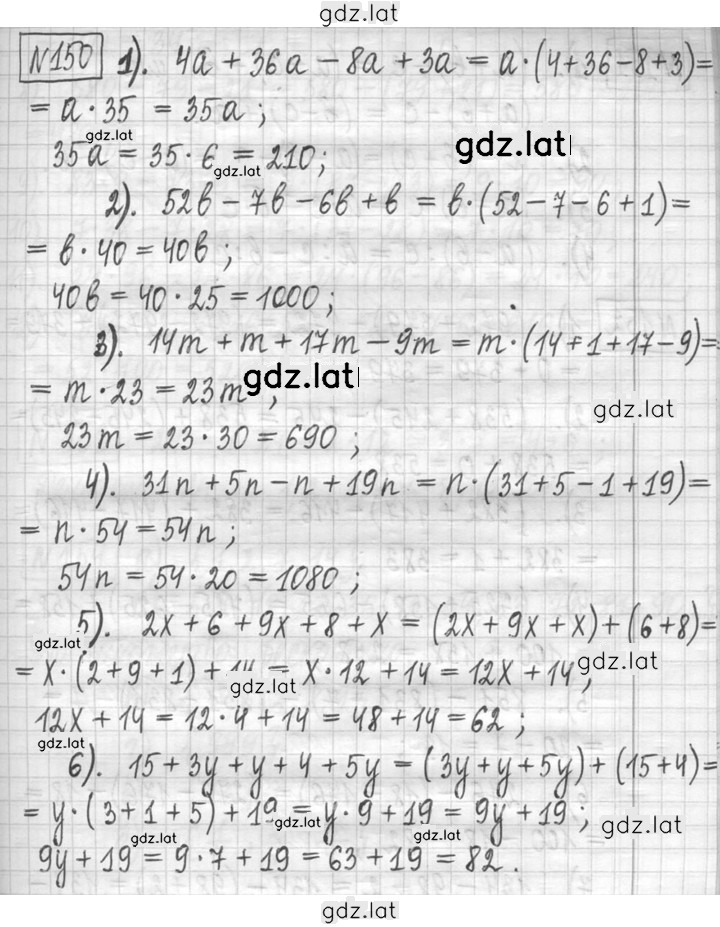 gdz.lat
№150 1). 4a + 36a − 8a + 3a = a·(4+36−8+3)=
= a·35 = 35a ;
gdz.lat
35a = 35·6 = 210;
gdz.lat
gdz.lat
2). 52в − 7в − 6в + в = в·(52−7−6+1)=
= в·40 = 40в ;
40в = 40·25 = 1000 ;
3). 14m + m + 17m − 9m = m·(14+1+17−9)=
= m·23 = 23m ;
gdz.lat
gdz.lat
23m = 23·30 = 690 ;
4). 31n + 5n − n + 19n = n·(31+5−1+19)=
= n·54 = 54n ;
54n = 54·20 = 1080 ;
5). 2x + 6 + 9x + 8 + x = (2x + 9x + x) + (6+8)=
gdz.lat
= x·(2+9+1) + = x·12 + 14 = 12x + 14 ;
gdz.lat
gdz.lat
12x + 14 = 12·4 + 14 = 48 + 14 = 62 ;
gdz.lat
6). 15 + 3y + y + 4 + 5y = (3y + y + 5y) + (15+4)=
= y·(3+1+5) + 19 = y·9 + 19 = 9y + 19 ;
gdz.lat
gdz.lat
gdz.lat
gdz.lat
9y + 19 = 9·7 + 19 = 63 + 19 = 82 .
gdz.lat